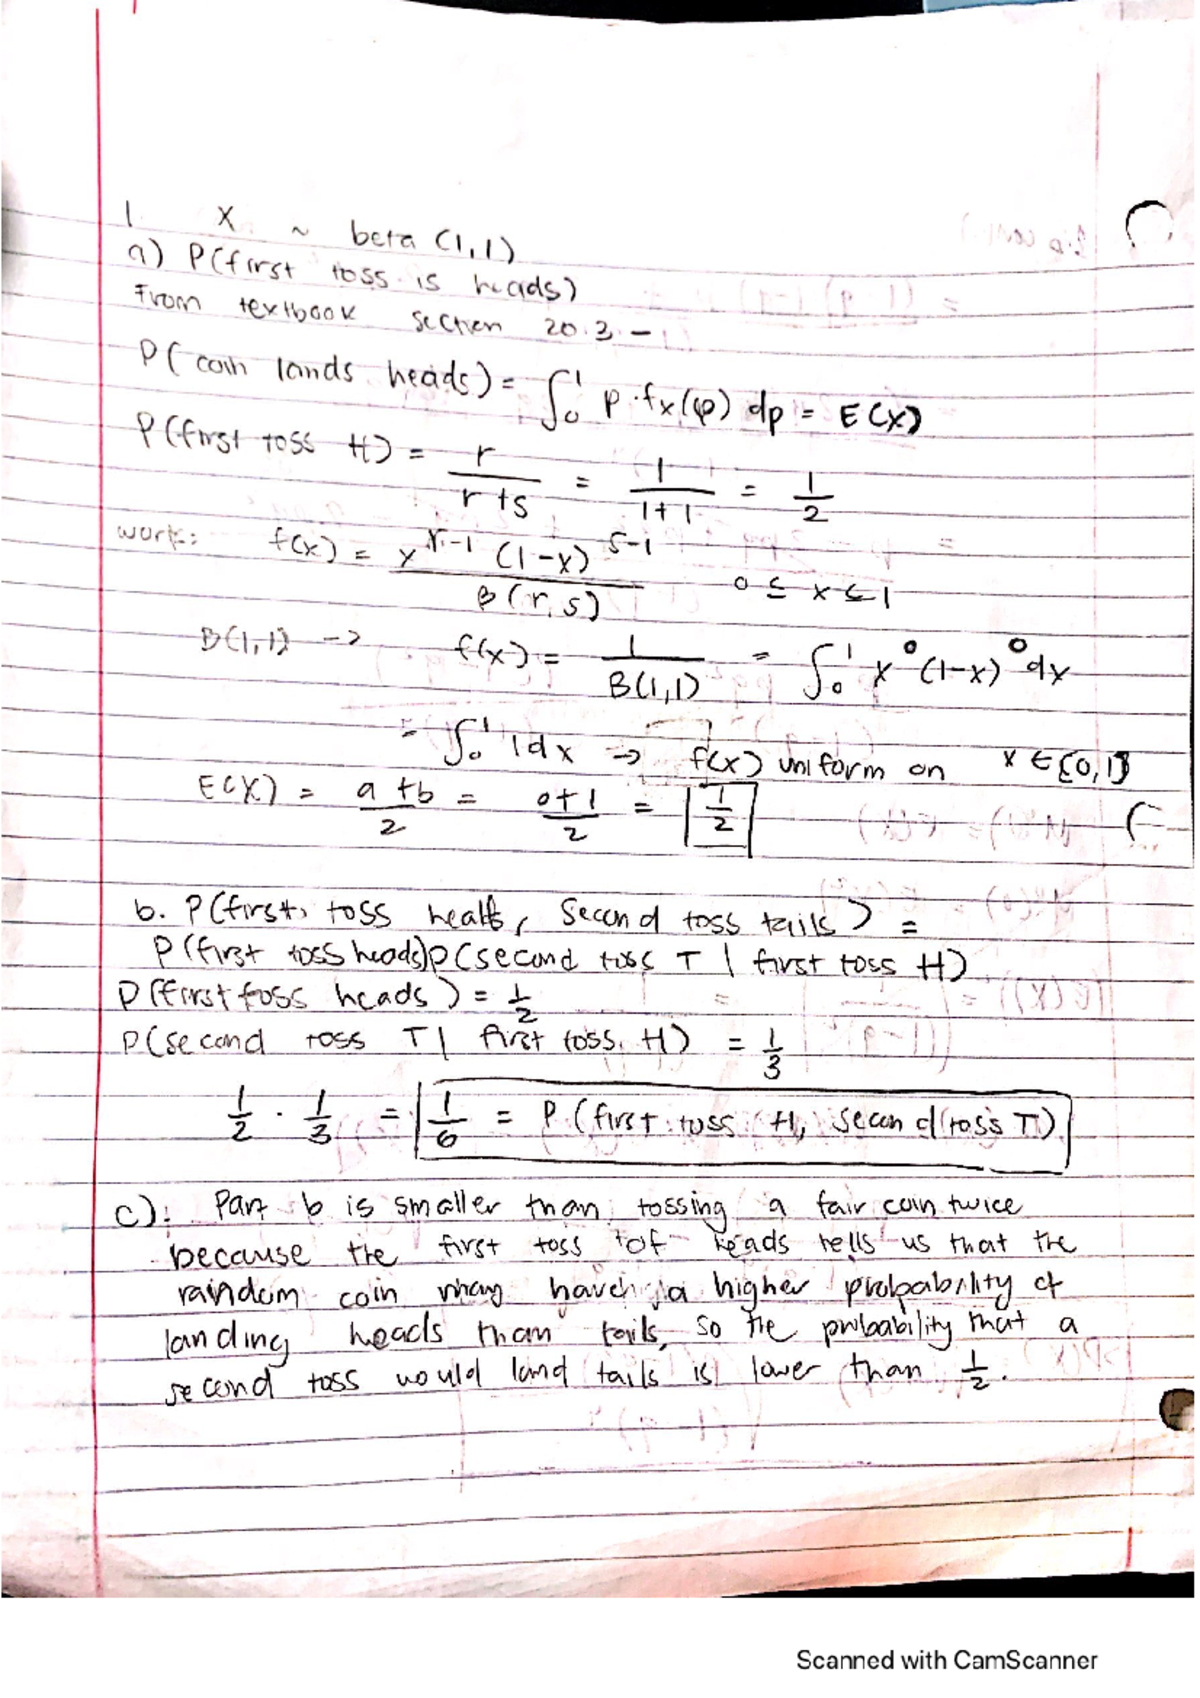 1. X ~ beta (1,1)
a) P(first toss is heads)
From textbook section 20.3 -
P(coin lands heads) = ∫₀¹ p·fx(p) dp = E(X)
P(first toss H) = r/(r+s) = 1/(1+1) = 1/2
work: f(x) = x^(r-1) (1-x)^(s-1) / B(r,s) 0 ≤ x ≤ 1
B(1,1) -> f(x) = 1/B(1,1) = ∫₀¹ x⁰(1-x)⁰dx
= ∫₀¹ 1dx -> f(x) uniform on x ∈ [0,1]
E(X) = (a+b)/2 = (0+1)/2 = 1/2
b. P(first toss heads, second toss tails) =
P(first toss heads)P(second toss T | first toss H)
P(first toss heads) = 1/2
P(second toss T | first toss H) = 1/3
1/2 · 1/3 = 1/6 = P(first toss H, second toss T)
c): Part b is smaller than tossing a fair coin twice
because the first toss of heads tells us that the
random coin may have a higher probability of
landing heads than tails, so the probability that a
second toss would land tails is lower than 1/2.
Scanned with CamScanner